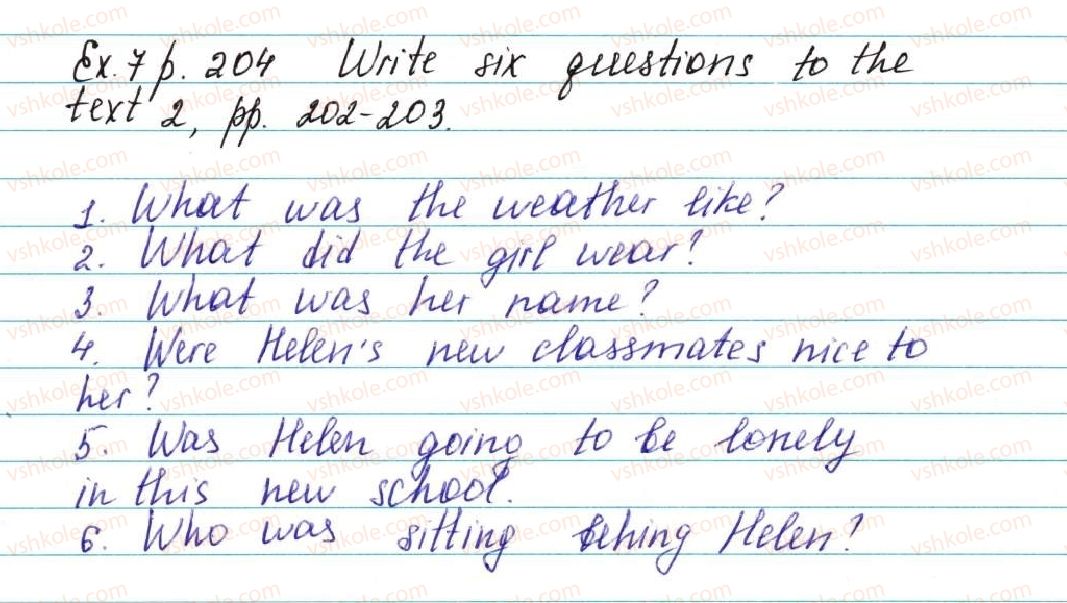 Ex. 7 p. 204 Write six questions to the
text 2, pp. 202-203.
1. What was the weather like?
2. What did the girl wear?
3. What was her name?
4. Were Helen's new classmates nice to
her?
5. Was Helen going to be lonely
in this new school.
6. Who was sitting behing Helen?
vshkole.com